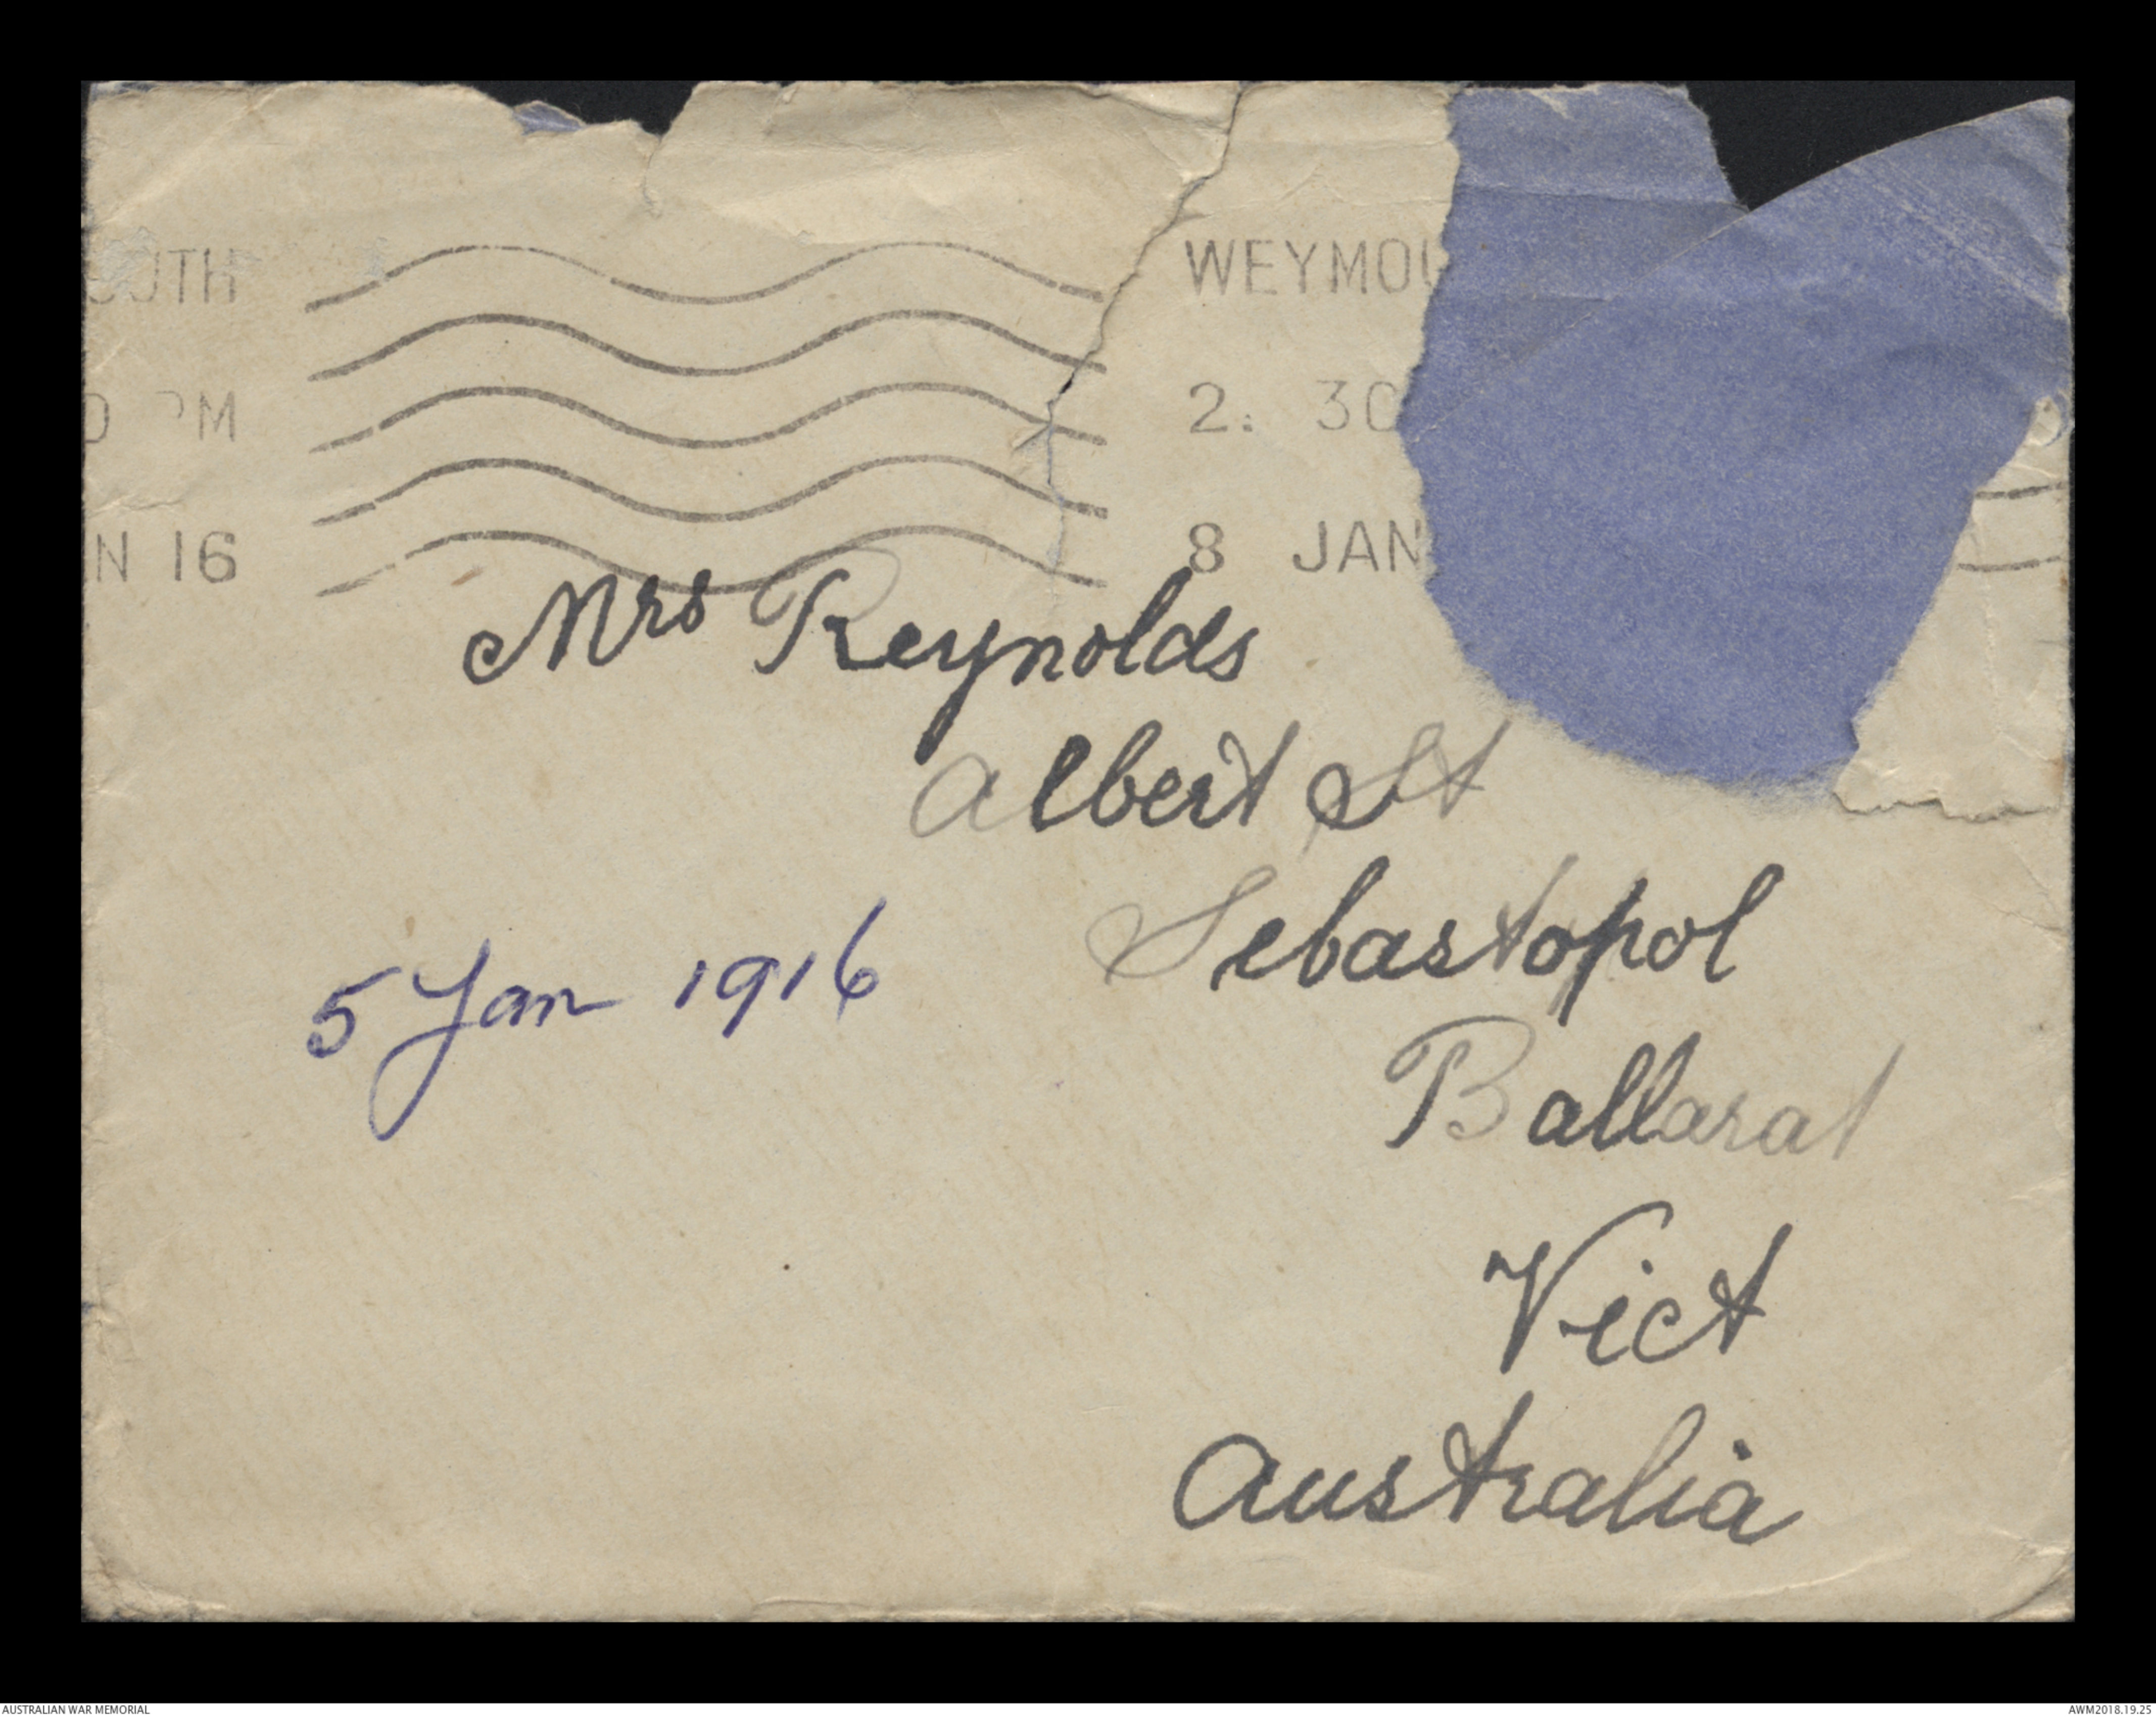 OUTH WEYMOU
0 PM 2. 30
N 16 8 JAN
Mrs Reynolds
Albert St
Sebastopol
5 Jan 1916
Ballarat
Vict
Australia
AUSTRALIAN WAR MEMORIAL AWM2018.19.25